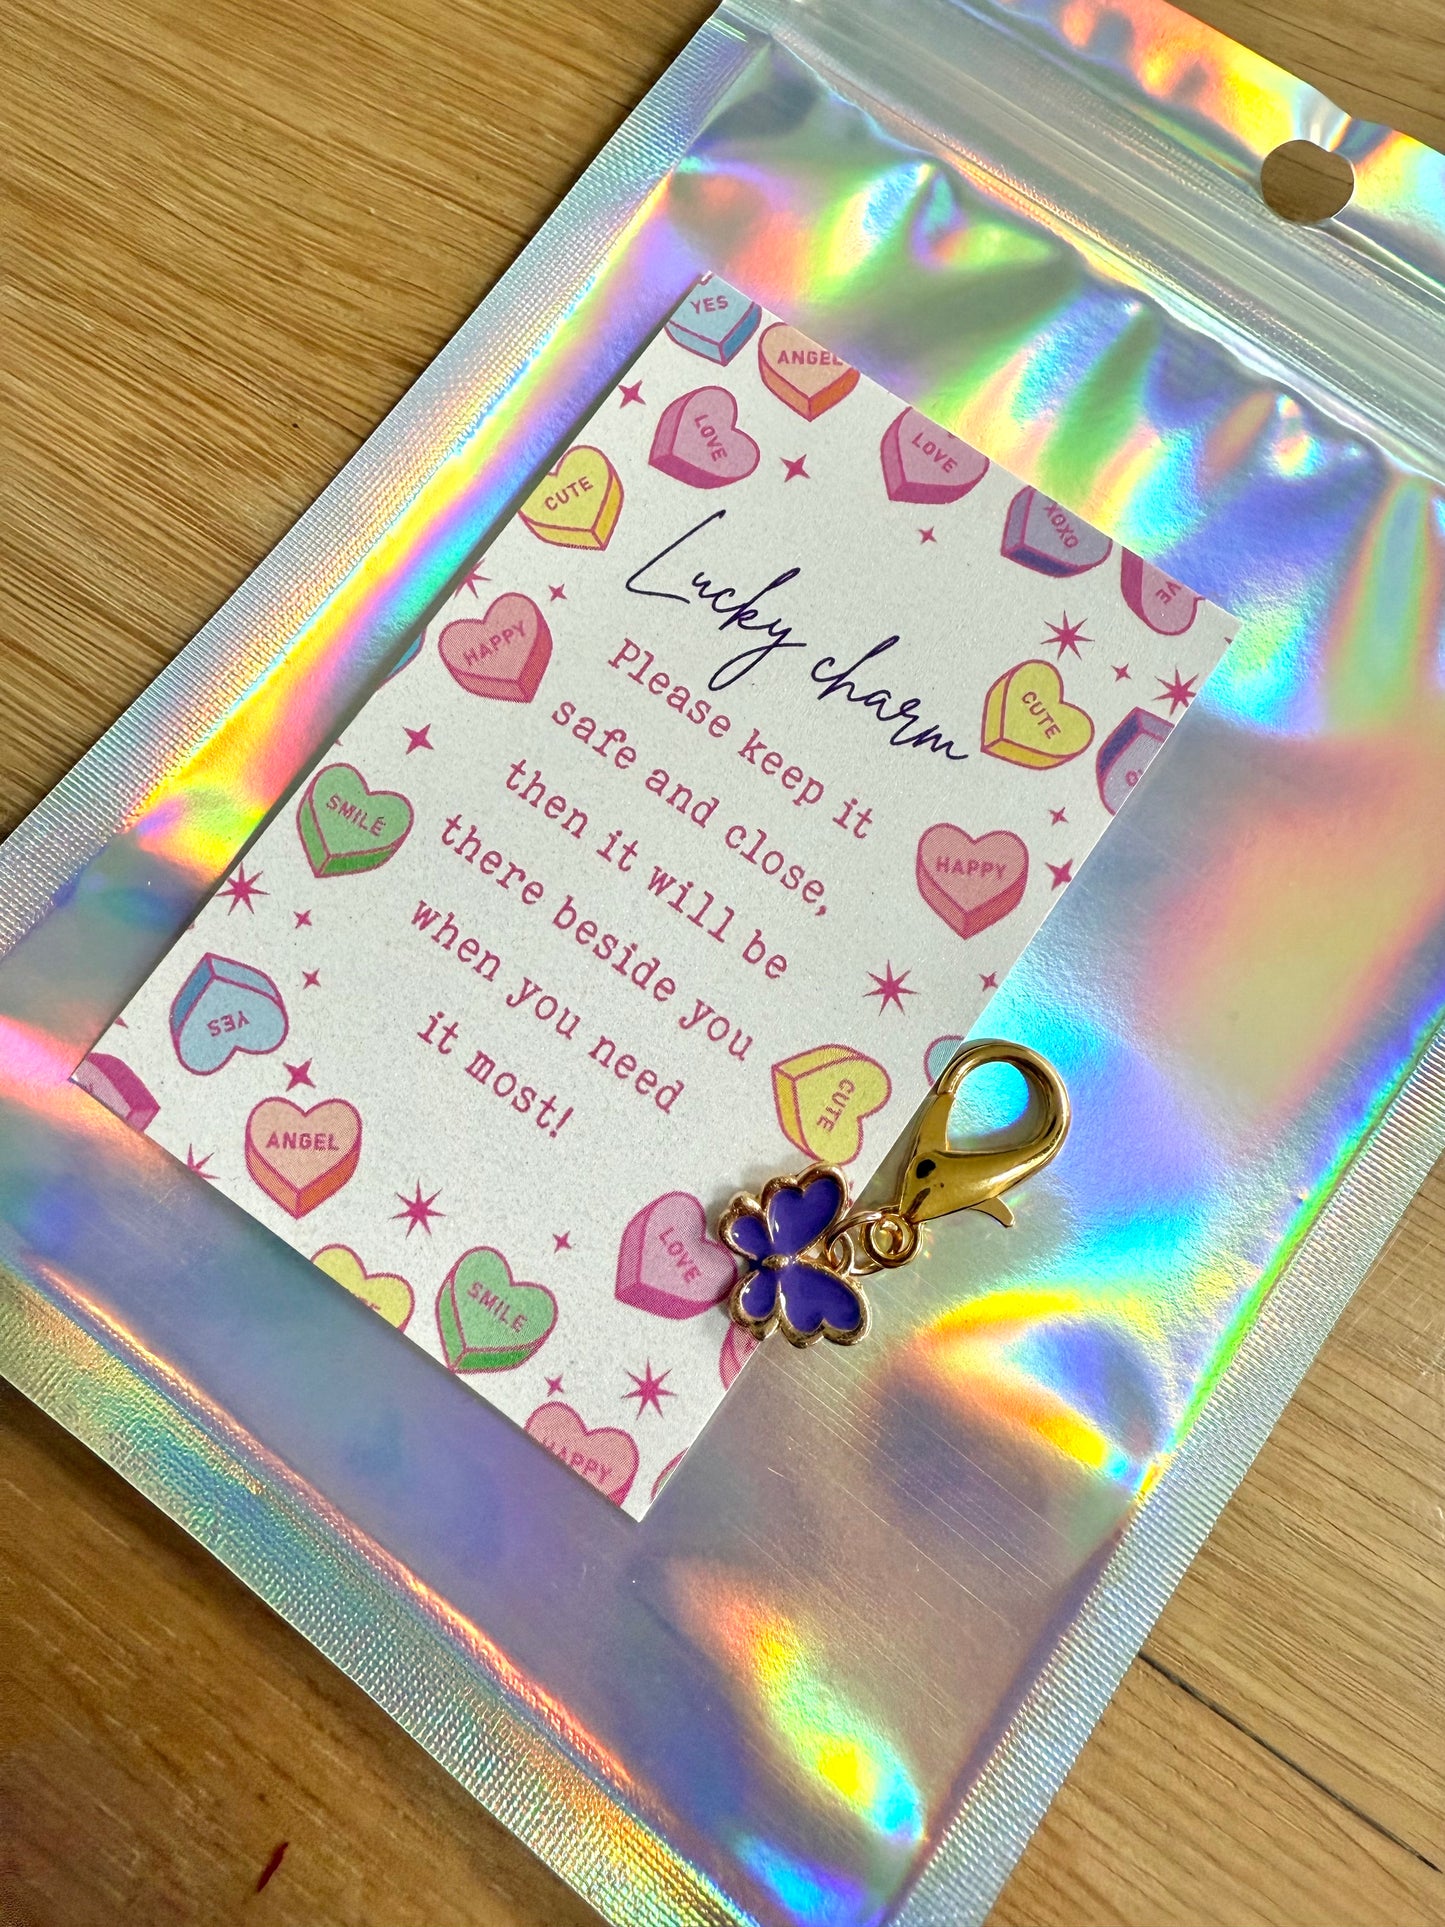 YES
ANGEL
LOVE
LOVE
CUTE
XOXO
VE
Lucky charm
HAPPY
CUTE
Please keep it
safe and close,
then it will be
there beside you
when you need
it most!
SMILE
HAPPY
YES
CUTE
ANGEL
LOVE
SMILE
HAPPY